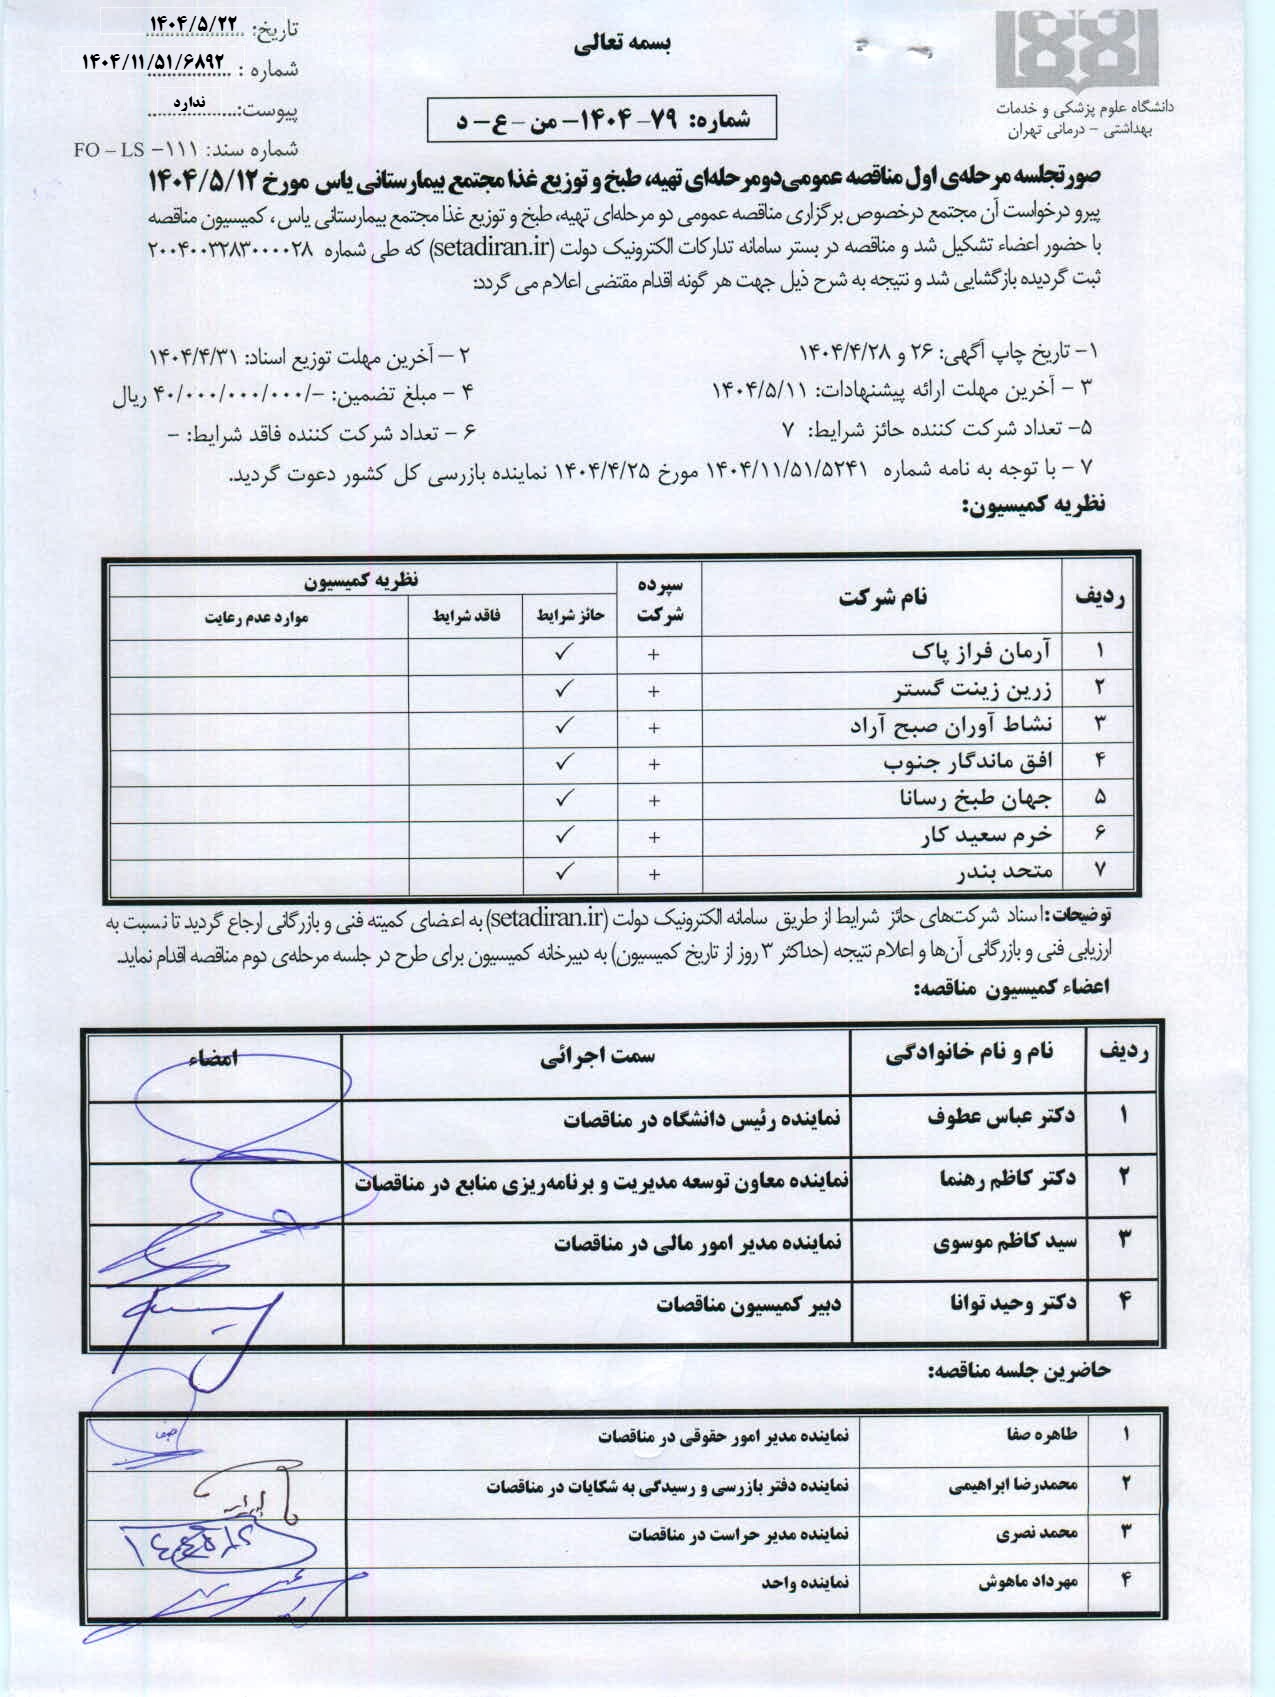 بسمه تعالی
دانشگاه علوم پزشکی و خدمات
بهداشتی - درمانی تهران
تاریخ: ۱۴۰۴/۵/۲۲
شماره : ۱۴۰۴/۱۱/۵۱/۶۸۹۲
پیوست: ندارد
شماره سند: FO – LS – ۱۱۱
شماره: ۷۹- ۱۴۰۴- من - ع - د
صورتجلسه مرحله‌ی اول مناقصه عمومی دومرحله‌ای تهیه، طبخ و توزیع غذا مجتمع بیمارستانی یاس مورخ ۱۴۰۴/۵/۱۲
پیرو درخواست آن مجتمع درخصوص برگزاری مناقصه عمومی دو مرحله‌ای تهیه، طبخ و توزیع غذا مجتمع بیمارستانی یاس، کمیسیون مناقصه
با حضور اعضاء تشکیل شد و مناقصه در بستر سامانه تدارکات الکترونیک دولت (setadiran.ir) که طی شماره ۲۰۰۴۰۰۳۲۸۳۰۰۰۰۲۸
ثبت گردیده بازگشایی شد و نتیجه به شرح ذیل جهت هر گونه اقدام مقتضی اعلام می گردد:
۱- تاریخ چاپ آگهی: ۲۶ و ۱۴۰۴/۴/۲۸ ۲ - آخرین مهلت توزیع اسناد: ۱۴۰۴/۴/۳۱
۳ - آخرین مهلت ارائه پیشنهادات: ۱۴۰۴/۵/۱۱ ۴ - مبلغ تضمین: -/۴۰/۰۰۰/۰۰۰/۰۰۰ ریال
۵- تعداد شرکت کننده حائز شرایط: ۷ ۶ - تعداد شرکت کننده فاقد شرایط: -
۷ - با توجه به نامه شماره ۱۴۰۴/۱۱/۵۱/۵۲۴۱ مورخ ۱۴۰۴/۴/۲۵ نماینده بازرسی کل کشور دعوت گردید.
نظریه کمیسیون:
ردیف نام شرکت سپرده شرکت نظریه کمیسیون
حائز شرایط فاقد شرایط موارد عدم رعایت
۱ آرمان فراز پاک + ✓
۲ زرین زینت گستر + ✓
۳ نشاط آوران صبح آراد + ✓
۴ افق ماندگار جنوب + ✓
۵ جهان طبخ رسانا + ✓
۶ خرم سعید کار + ✓
۷ متحد بندر + ✓
توضیحات: اسناد شرکت‌های حائز شرایط از طریق سامانه الکترونیک دولت (setadiran.ir) به اعضای کمیته فنی و بازرگانی ارجاع گردید تا نسبت به
ارزیابی فنی و بازرگانی آن‌ها و اعلام نتیجه (حداکثر ۳ روز از تاریخ کمیسیون) به دبیرخانه کمیسیون برای طرح در جلسه مرحله‌ی دوم مناقصه اقدام نماید.
اعضاء کمیسیون مناقصه:
ردیف نام و نام خانوادگی سمت اجرائی امضاء
۱ دکتر عباس عطوف نماینده رئیس دانشگاه در مناقصات
۲ دکتر کاظم رهنما نماینده معاون توسعه مدیریت و برنامه‌ریزی منابع در مناقصات
۳ سید کاظم موسوی نماینده مدیر امور مالی در مناقصات
۴ دکتر وحید توانا دبیر کمیسیون مناقصات
حاضرین جلسه مناقصه:
۱ طاهره صفا نماینده مدیر امور حقوقی در مناقصات
۲ محمدرضا ابراهیمی نماینده دفتر بازرسی و رسیدگی به شکایات در مناقصات
۳ محمد نصری نماینده مدیر حراست در مناقصات
۴ مهرداد ماهوش نماینده واحد